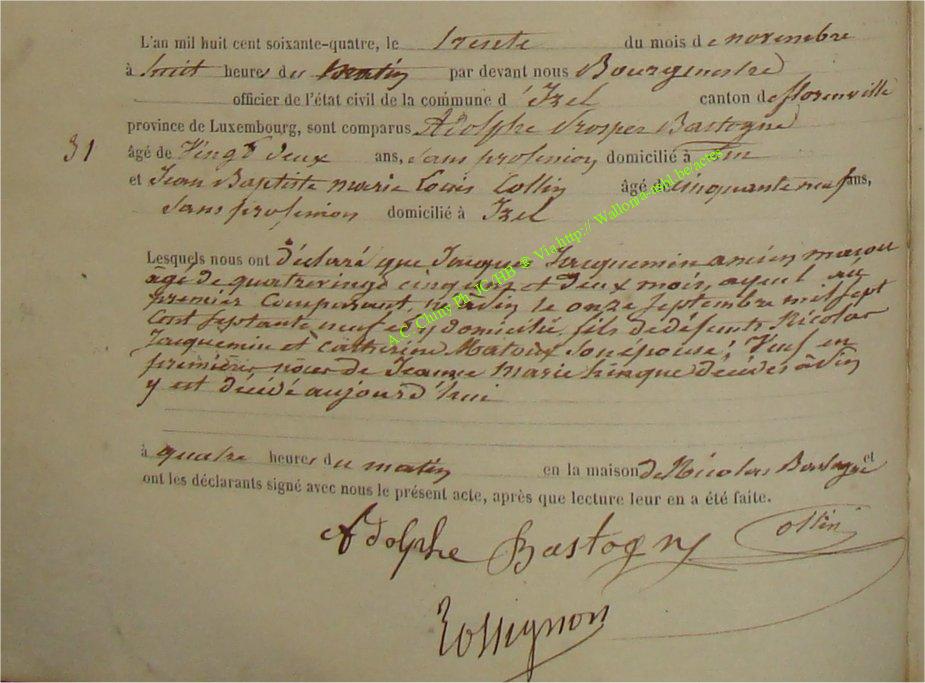 L'an mil huit cent soixante-quatre, le trente du mois de novembre
à huit heures du matin par devant nous Bourgmestre
officier de l'état civil de la commune d'Izel canton de florenville
province de Luxembourg, sont comparus Adolphe Prosper Bastogne
31 âgé de Vingt deux ans, sans profession domicilié à Pin
et Jean Baptiste marie Louis Collin âgé de cinquante neuf ans,
sans profession domicilié à Izel
Lesquels nous ont déclaré que Jacques Jacquemin ancien maçon
âgé de quatrevingt cinq ans et deux mois, ayeul au
premier comparant, né à Pin le onze septembre mil sept
cent septante neuf et y domicilié, fils de défunts Nicolas
Jacquemin et Catherine Matoux son épouse; Veuf en
premières nôces de Jeanne Marie hinque décédée à Pin
y est décédé aujourd'hui
à quatre heures du matin en la maison de Nicolas Bastogne et
ont les déclarants signé avec nous le présent acte, après que lecture leur en a été faite.
Adolphe Bastogne Collin
Rossignon
A.C. Chiny Ph JC/HB ® Via http:// Wallonia-asbl.be/actes